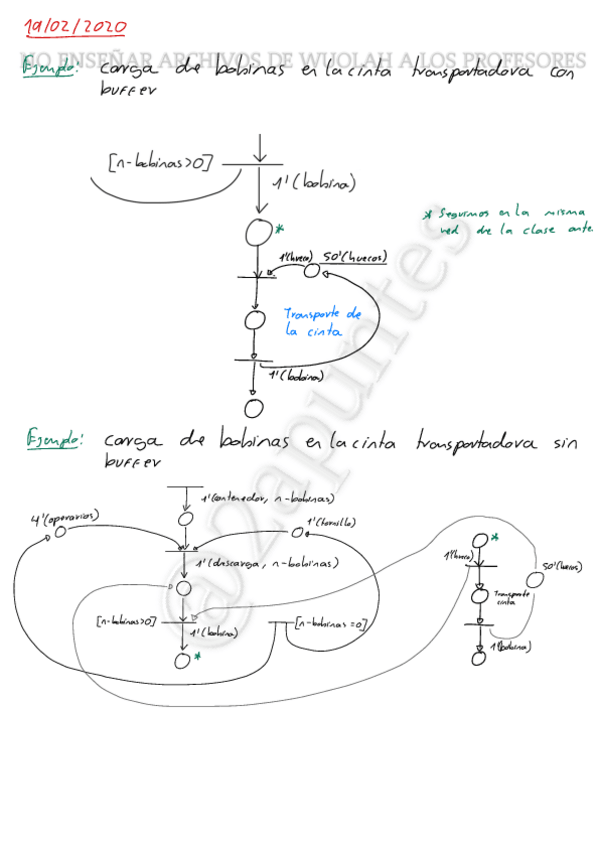 19/02/2020
NO ENSEÑAR ARCHIVOS DE WUOLAH A LOS PROFESORES
Ejemplo: carga de bobinas en la cinta transportadora con
buffer
[n-bobinas>0]
1'(bobina)
* Seguimos en la misma
red de la clase ante.
*
1'(hueco) 50'(huecos)
Transporte de
la cinta
1'(bobina)
@2apuntes
Ejemplo: carga de bobinas en la cinta transportadora sin
buffer
1'(contenedor, n-bobinas)
4'(operarios)
1'(tornillo)
*
1'(hueco)
1'(descarga, n-bobinas)
50'(huecos)
Transporte
cinta
[n-bobinas>0]
[n-bobinas=0]
1'(bobina)
1'(bobina)
*